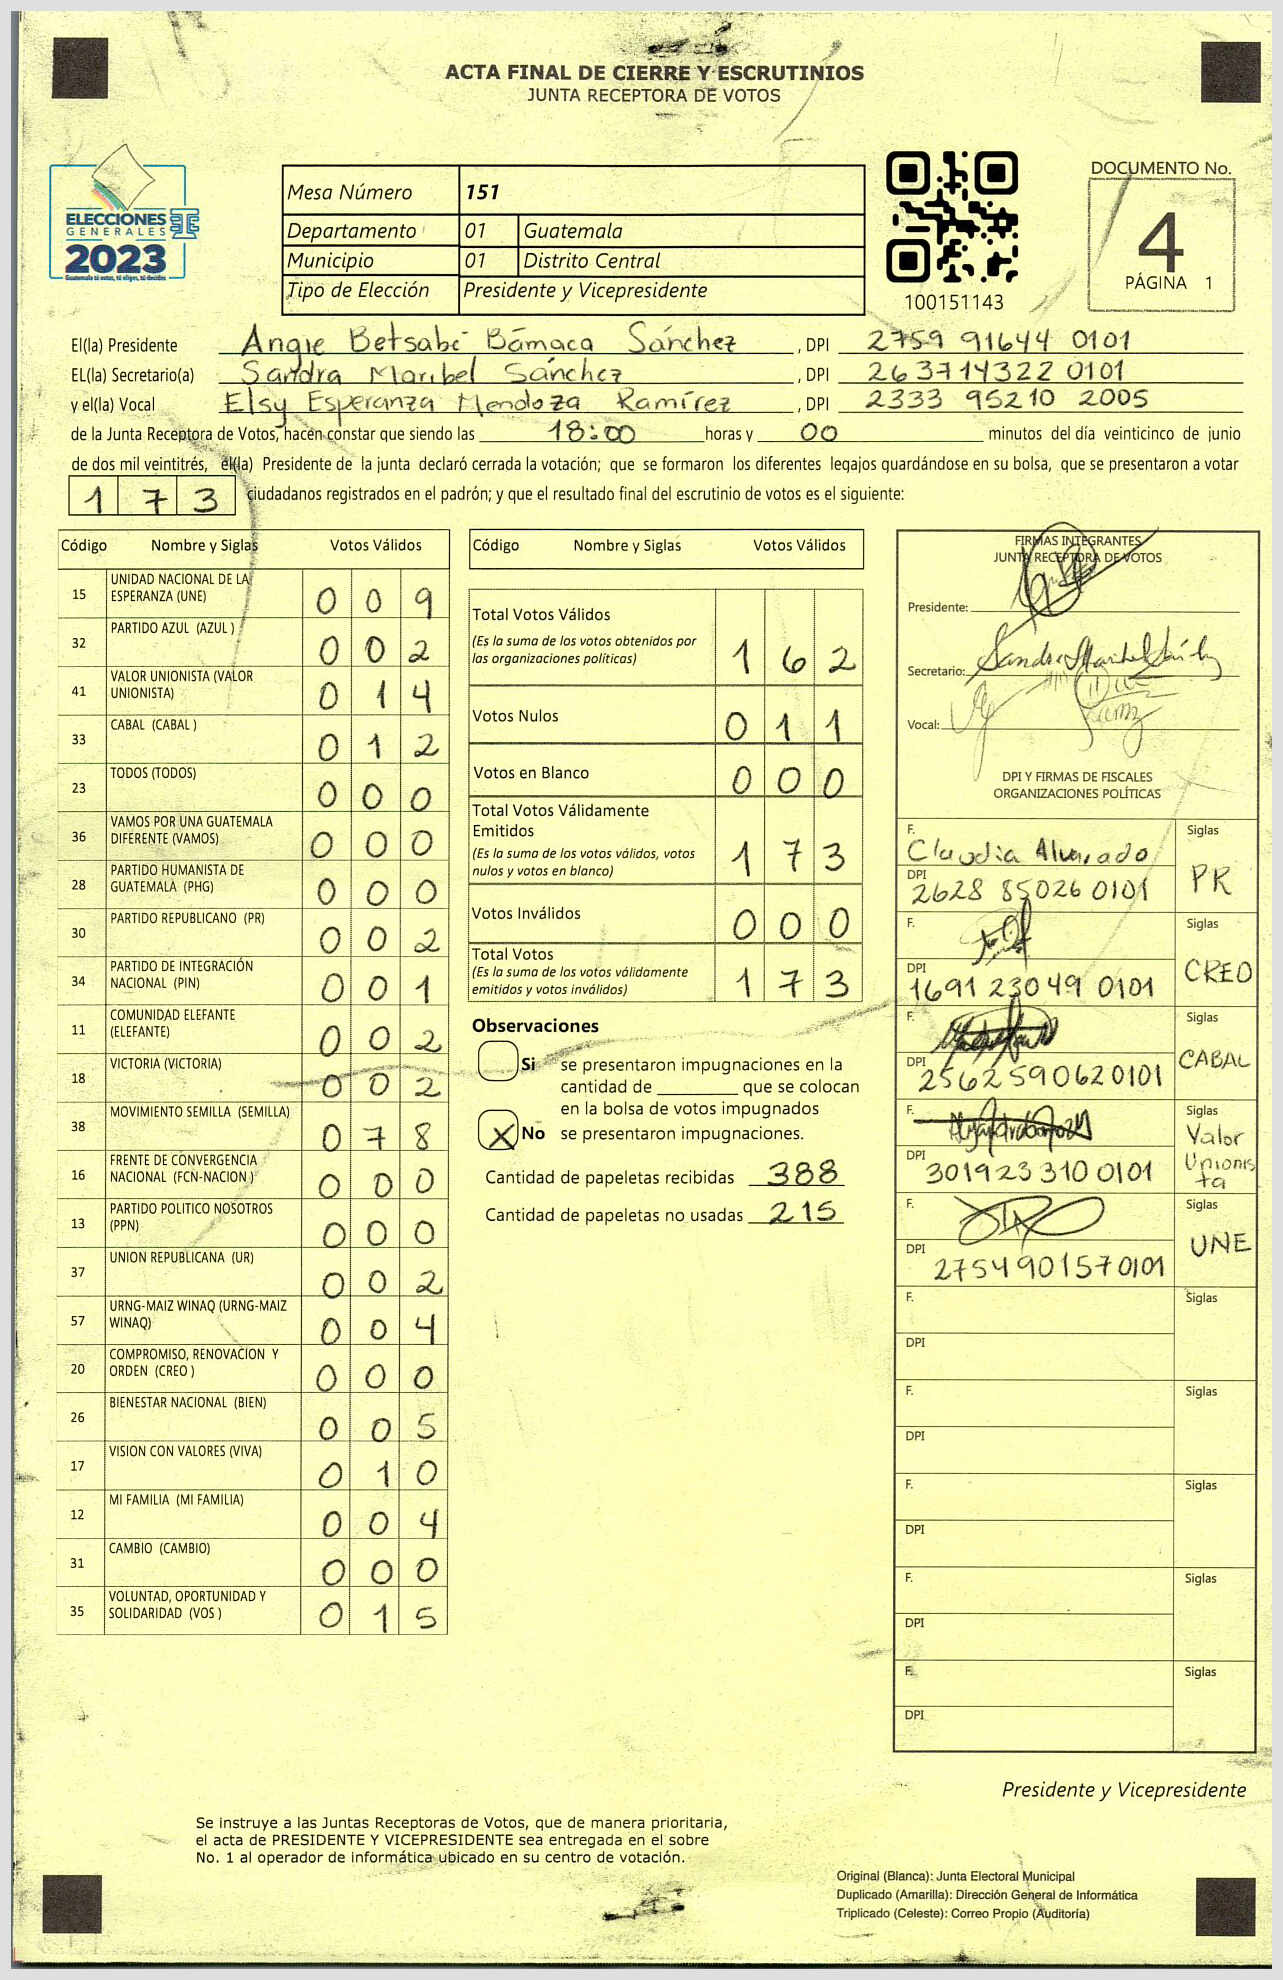 ACTA FINAL DE CIERRE Y ESCRUTINIOS
JUNTA RECEPTORA DE VOTOS
ELECCIONES
GENERALES
2023
Guatemala tú votas, tú eliges, tú decides
Mesa Número 151
Departamento 01 Guatemala
Municipio 01 Distrito Central
Tipo de Elección Presidente y Vicepresidente
100151143
DOCUMENTO No.
4
PÁGINA 1
El(la) Presidente Angie Betsabé Bámaca Sánchez , DPI 2759 91644 0101
EL(la) Secretario(a) Sandra Maribel Sánchez , DPI 263714322 0101
y el(la) Vocal Elsy Esperanza Mendoza Ramírez , DPI 2333 95210 2005
de la Junta Receptora de Votos, hacen constar que siendo las 18:00 horas y 00 minutos del día veinticinco de junio
de dos mil veintitrés, el(la) Presidente de la junta declaró cerrada la votación; que se formaron los diferentes legajos guardándose en su bolsa, que se presentaron a votar
173 ciudadanos registrados en el padrón; y que el resultado final del escrutinio de votos es el siguiente:
Código Nombre y Siglas Votos Válidos
15 UNIDAD NACIONAL DE LA ESPERANZA (UNE) 0 0 9
32 PARTIDO AZUL (AZUL ) 0 0 2
41 VALOR UNIONISTA (VALOR UNIONISTA) 0 1 4
33 CABAL (CABAL ) 0 1 2
23 TODOS (TODOS) 0 0 0
36 VAMOS POR UNA GUATEMALA DIFERENTE (VAMOS) 0 0 0
28 PARTIDO HUMANISTA DE GUATEMALA (PHG) 0 0 0
30 PARTIDO REPUBLICANO (PR) 0 0 2
34 PARTIDO DE INTEGRACIÓN NACIONAL (PIN) 0 0 1
11 COMUNIDAD ELEFANTE (ELEFANTE) 0 0 2
18 VICTORIA (VICTORIA) 0 0 2
38 MOVIMIENTO SEMILLA (SEMILLA) 0 7 8
16 FRENTE DE CONVERGENCIA NACIONAL (FCN-NACION ) 0 0 0
13 PARTIDO POLITICO NOSOTROS (PPN) 0 0 0
37 UNION REPUBLICANA (UR) 0 0 2
57 URNG-MAIZ WINAQ (URNG-MAIZ WINAQ) 0 0 4
20 COMPROMISO, RENOVACION Y ORDEN (CREO ) 0 0 0
26 BIENESTAR NACIONAL (BIEN) 0 0 5
17 VISION CON VALORES (VIVA) 0 1 0
12 MI FAMILIA (MI FAMILIA) 0 0 4
31 CAMBIO (CAMBIO) 0 0 0
35 VOLUNTAD, OPORTUNIDAD Y SOLIDARIDAD (VOS ) 0 1 5
Código Nombre y Siglas Votos Válidos
Total Votos Válidos
(Es la suma de los votos obtenidos por
las organizaciones políticas) 1 6 2
Votos Nulos 0 1 1
Votos en Blanco 0 0 0
Total Votos Válidamente
Emitidos
(Es la suma de los votos válidos, votos
nulos y votos en blanco) 1 7 3
Votos Inválidos 0 0 0
Total Votos
(Es la suma de los votos válidamente
emitidos y votos inválidos) 1 7 3
Observaciones
Si se presentaron impugnaciones en la
cantidad de ________ que se colocan
en la bolsa de votos impugnados
X No se presentaron impugnaciones.
Cantidad de papeletas recibidas 388
Cantidad de papeletas no usadas 215
FIRMAS INTEGRANTES
JUNTA RECEPTORA DE VOTOS
Presidente:
Secretario: Sandra Maribel
Vocal:
DPI Y FIRMAS DE FISCALES
ORGANIZACIONES POLÍTICAS
F. Claudia Alvarado
DPI 2628 85026 0101
Siglas PR
F.
DPI 1691 23049 0101
Siglas CREO
F.
DPI 2562590620101
Siglas CABAL
F.
DPI 301923310 0101
Siglas Valor Unionista
F.
DPI 2754901570101
Siglas UNE
F. Siglas
DPI
F. Siglas
DPI
F. Siglas
DPI
F. Siglas
DPI
F. Siglas
DPI
Presidente y Vicepresidente
Se instruye a las Juntas Receptoras de Votos, que de manera prioritaria,
el acta de PRESIDENTE Y VICEPRESIDENTE sea entregada en el sobre
No. 1 al operador de informática ubicado en su centro de votación.
Original (Blanca): Junta Electoral Municipal
Duplicado (Amarilla): Dirección General de Informática
Triplicado (Celeste): Correo Propio (Auditoría)